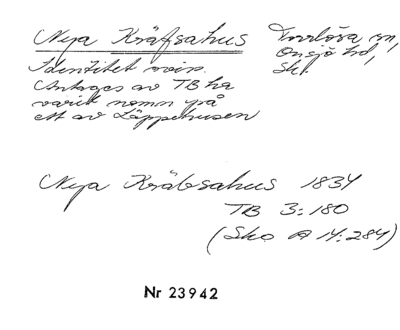 Nya Kräfsahus
Torrlösa sn,
Onsjö hd,
Sk.
Identitet osin.
Antages av TB ha
varit namn på
ett av Läppehusen
Nya Kräbsahus 1834
TB 3:180
(Sko A 14:284)
Nr 23942